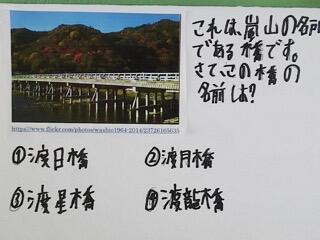 これは、嵐山の名所
である橋です。
さて、この橋の
名前は?
https://www.flickr.com/photos/washio1964-2014/23726165635
①渡日橋
②渡月橋
③渡星橋
④渡龍橋